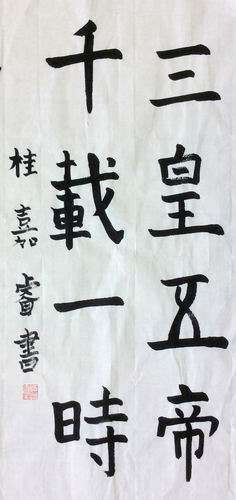 三皇五帝
千載一時
桂嘉睿書